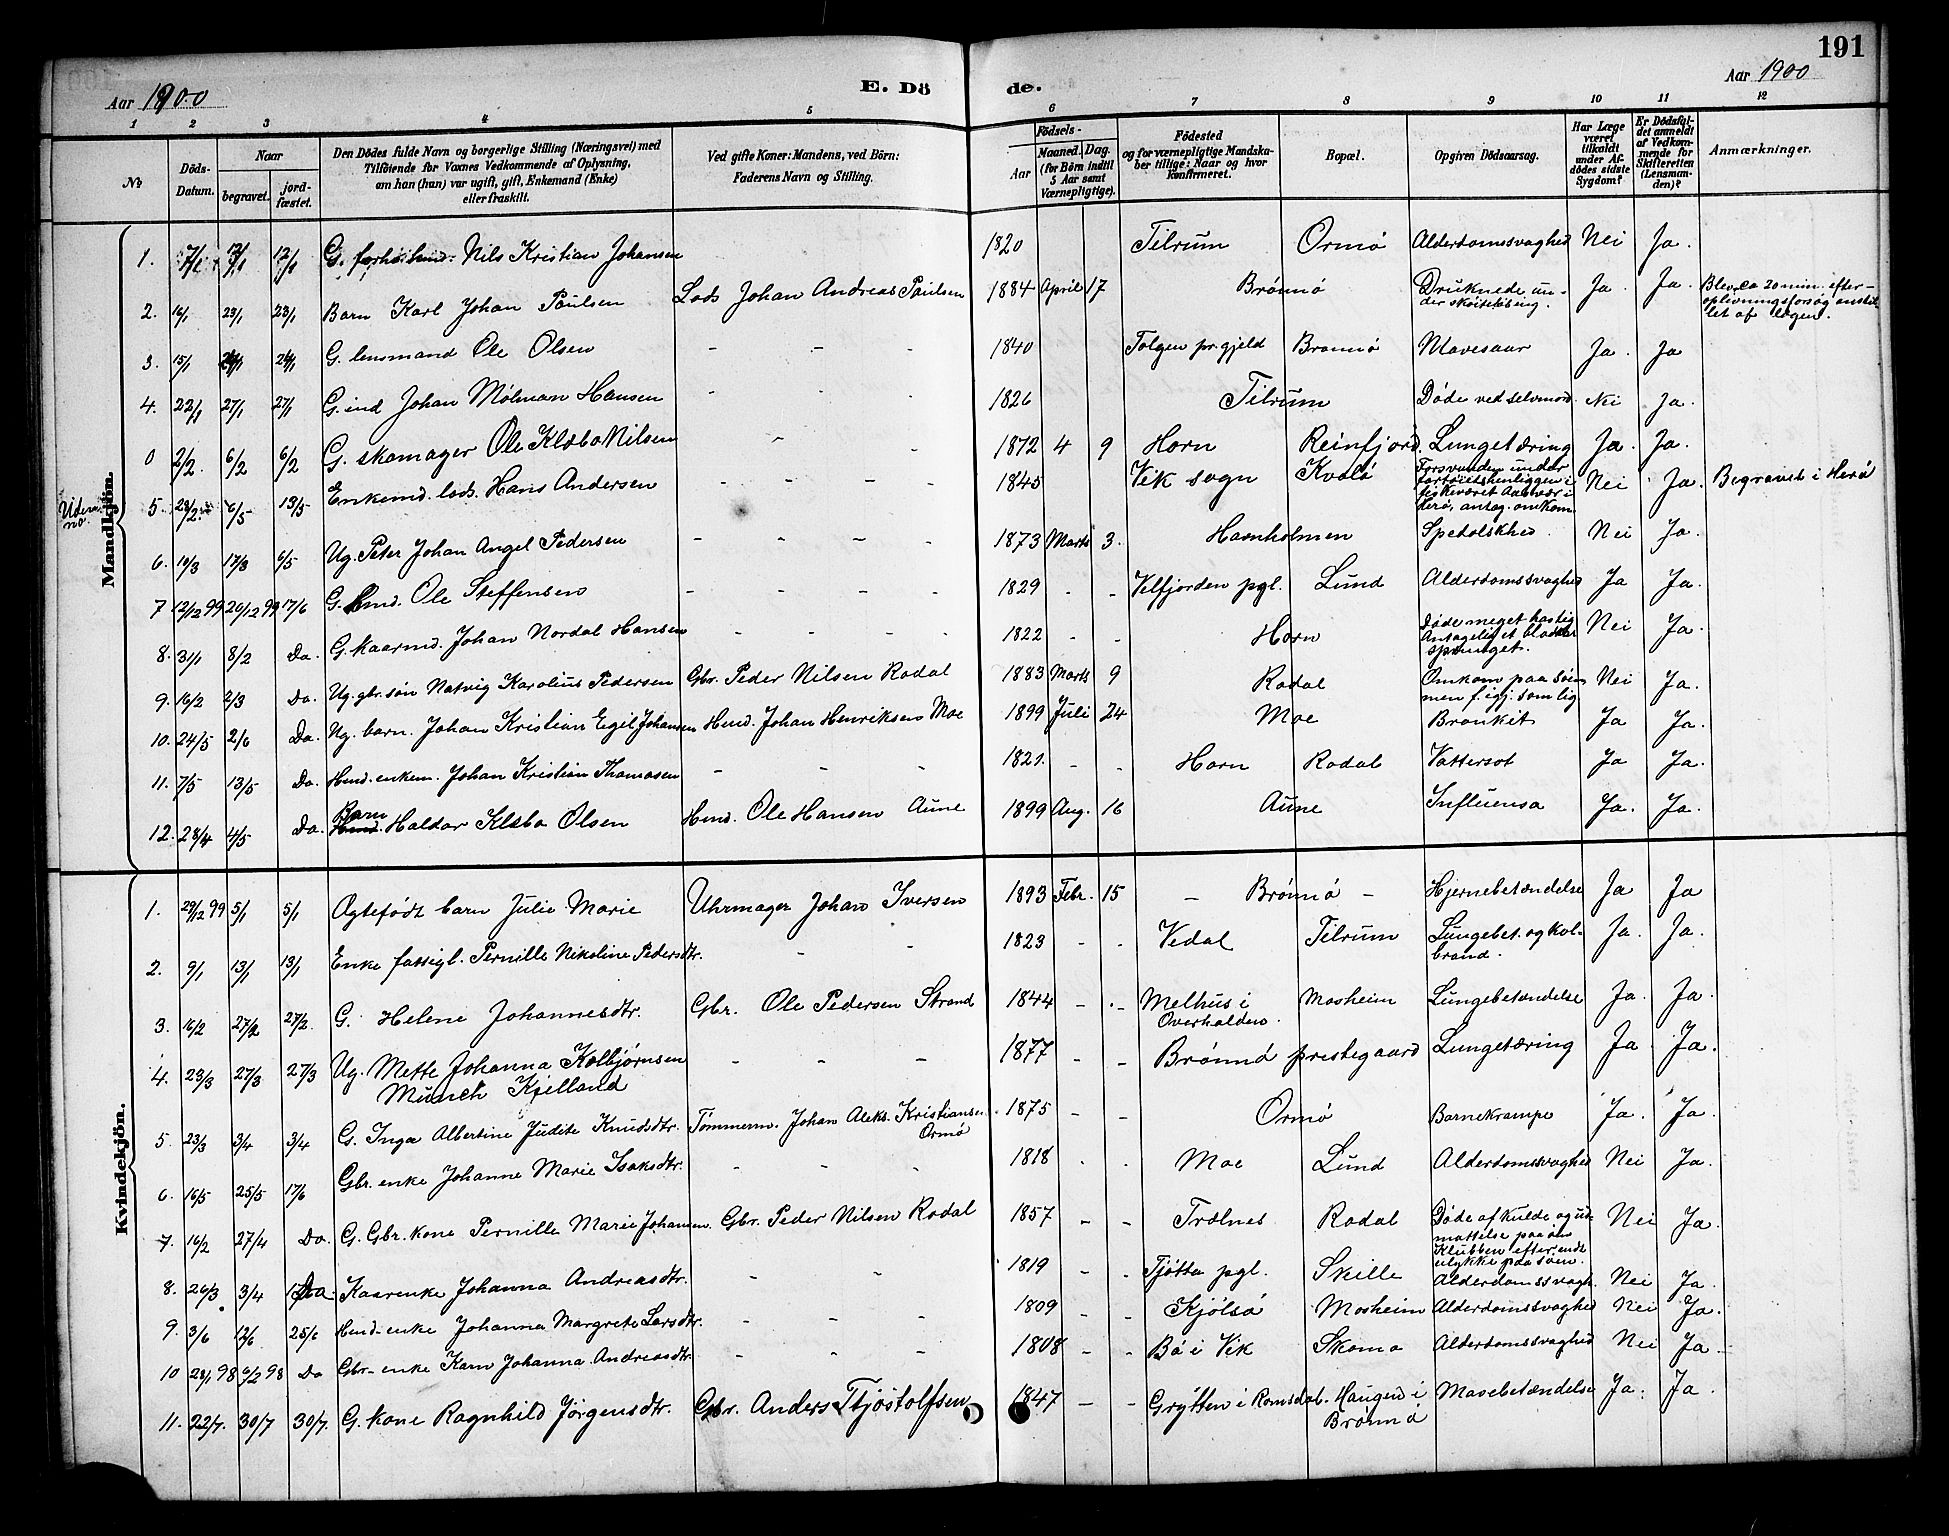 191
Aar 1900
E. Dö
de.
Aar 1900
1 2 3 4 5 6 7 8 9 10 11 12
№
Döds-Datum.
Naar
begravet.
jord-fæstet.
Den Dödes fulde Navn og borgerlige Stilling (Næringsvei) med
Tilföiende for Voxnes Vedkommende af Oplysning,
om han (hun) var ugift, gift, Enkemand (Enke)
eller fraskilt.
Ved gifte Koner: Mandens, ved Börn:
Faderens Navn og Stilling.
Födsels-
Aar
Maaned. Dag.
(for Börn indtil
5 Aar samt
Værnepligtige).
Födested
og for værnepligtige Mandska-
ber tillige: Naar og hvor
konfirmeret.
Bopæl.
Opgiven Dödsaarsag.
Har Læge
været
tilkaldt
under Af-
dödes sidste
Sygdom?
Er Dödsfal-
det anmeldt
af Vedkom-
mende for
Skifteretten
(Lensman-
den)?
Anmærkninger.
Mandkjön.
1. 7/1 12/1 12/1 G. Nils Kristian Johansen 1820 Tilrum Ormø Alderdomssvaghed Nei Ja.
2. 16/1 23/1 23/1 Barn Karl Johan Paulsen Lods Johan Andreas Paulsen 1884 April 17 Brønnø Druknede un-
der skøiteløbing. Ja. Ja. Blev ca 20 min. efter-
oplivningsforsøg anstil
let af lægen.
3. 15/1 24/1 G. lensmand Ole Olsen - - - 1840 Tolgen pr.gjeld Brønnø Mavesaar Ja. Ja
4. 22/1 27/1 27/1 G. ind Johan Mølman Hansen - - 1826 Tilrum Døde ved selvmord. Nei Ja.
0 2/2. 6/2 6/2 G. skomager Ole Klæbo Nilsen - - 1872 4 9 Horn Reinfjord. Lungetæring Ja. Ja.
5. 28/2 6/5 13/5 Enkemd. lods. Hans Andersen - - - - 1845 Vik sogn Kvalø Forsvunden under
fartøietshenliggen i
fiskeværet Aasvær i
Herø, antag. omkom. Nei Ja. Begravet i Herø
6. 10/3 17/3 6/5 Ug. Peter Johan Angel Pedersen - - - - 1873 Marts 3. Havnholmen Spedalskhed. Nei Ja.
7 12/12 99 20/12 99 17/6 G. Ole Steffensen - - - - 1829 - - Velfjorden pgl. Lund Alderdomssvaghed Ja Ja.
8. 31/1 8/2 Do. G. kaarmd. Johan Nordal Hansen - - - - 1822 - - Horn Døde meget hastig
Antagelig et blodkar
sprunget. Nei Ja.
9. 16/2 2/3 Do. Ug. gbr. søn Natvig Karolius Pedersen Gbr. Peder Nilsen Rodal 1883 Marts 9 Rodal Omkom paa søen
men f. igj. som lig Nei Ja.
10. 24/5 2/6 Do. Ug. barn. Johan Kristian Egil Johansen Hmd. Johan Henriksen Moe 1899 Juli 24 Moe Bronkit Ja Ja.
11. 7/5 13/5 Do. Hmd. enkem. Johan Kristian Thomasen - - - 1821. - - Horn Rodal Vattersot Ja Ja.
12. 28/4 4/5 Do. Barn Haldor Klæbo Olsen Hmd. Ole Hansen Aune 1899 Aug. 16 Aune Influensa Ja. Ja.
Kvindekjön.
1. 29/12 99 5/1 5/1 Ægtefødt barn Julie Marie Uhrmager Johan Iversen 1893 Febr. 15 - Brønnø - Hjernebetændelse Ja Ja
2. 9/1 13/1 13/1 Enke fattigl. Pernille Nikoline Pedersdtr. - - 1823 - - Vedal Tilrum Lungebet. og kol-
brand. Ja. Ja.
3. 16/2 27/2 27/2. G. Helene Johannesdtr. Gbr. Ole Pedersen Strand 1844 - - Melhus i
Overhalden. Mosheim Lungebetændelse Ja. Ja.
4. 23/3 27/3 27/3 Ug. Mette Johanna Kolbjørnsen
Munch Kielland - - - 1877 - - Brønnø prestegaard Lungetæring Ja Ja.
5. 23/3 3/4 3/4 G. Inga Albertine Judite Knudsdtr. Tømmerm. Johan Aleks. Kristiansen
Ormø 1875 - - Ormø Barnekrampe Ja. Ja.
6. 16/5 25/5 17/6 Gbr. enke Johanne Marie Isaksdtr. - - - 1818 - - Moe Lund Alderdomssvaghed Nei Ja.
7. 16/2 27/4 Do. G. Gbr. kone Pernille Marie Johansen. Gbr. Peder Nilsen Rodal 1857 - - Trælnes Rodal Døde af kulde og ud-
mattelse paa
Klubben efter endt
ulykke paa søen. Nei Ja.
8. 26/3 3/4 Do. Kaarenke Johanna Andreasdtr. - - 1819 - - Tjøtta pgl. Skille Alderdomssvagh. Nei Ja.
9. 3/6 12/6 25/6 Hmd-enke Johanna Margrete Larsdtr. - - - 1809 - - Kjølsø Mosheim Alderdomssvaghed Nei Ja.
10 28/1 98 6/2 98 Do Gbr-enke Karn Johanna Andreasdtr. - - - 1808 - - Bø i Vik Skomo Alderdomssvaghed Nei Ja.
11. 22/7. 30/7 30/7. G. kone Ragnhild Jørgensdtr. Gbr. Anders Tjøstolfsen 1847 - - Grytten i Romsdal. Haugen i
Brønnø Mavebetændelse Ja. Ja.